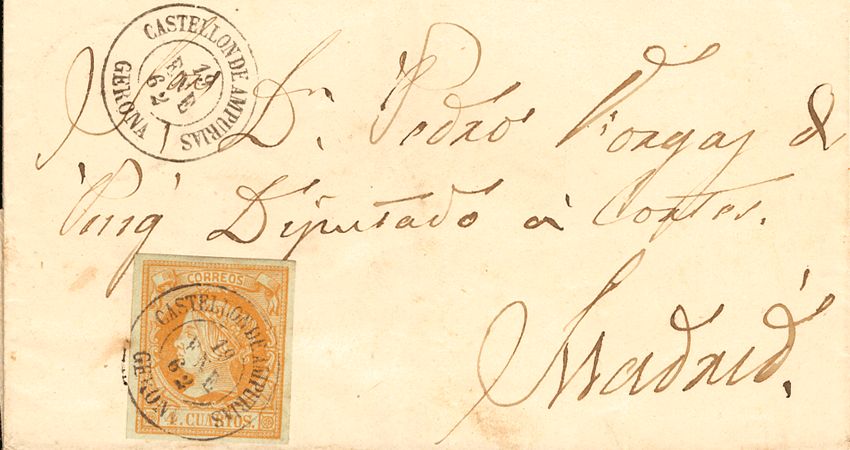 CASTELLON DE AMPURIAS
19
ENE
62
GERONA
Dn. Pedro &
Puig Diputado à Cortes.
Madrid.
CORREOS
CASTELLON DE AMPURIAS
19
ENE
62
GERONA
4. CUARTOS.